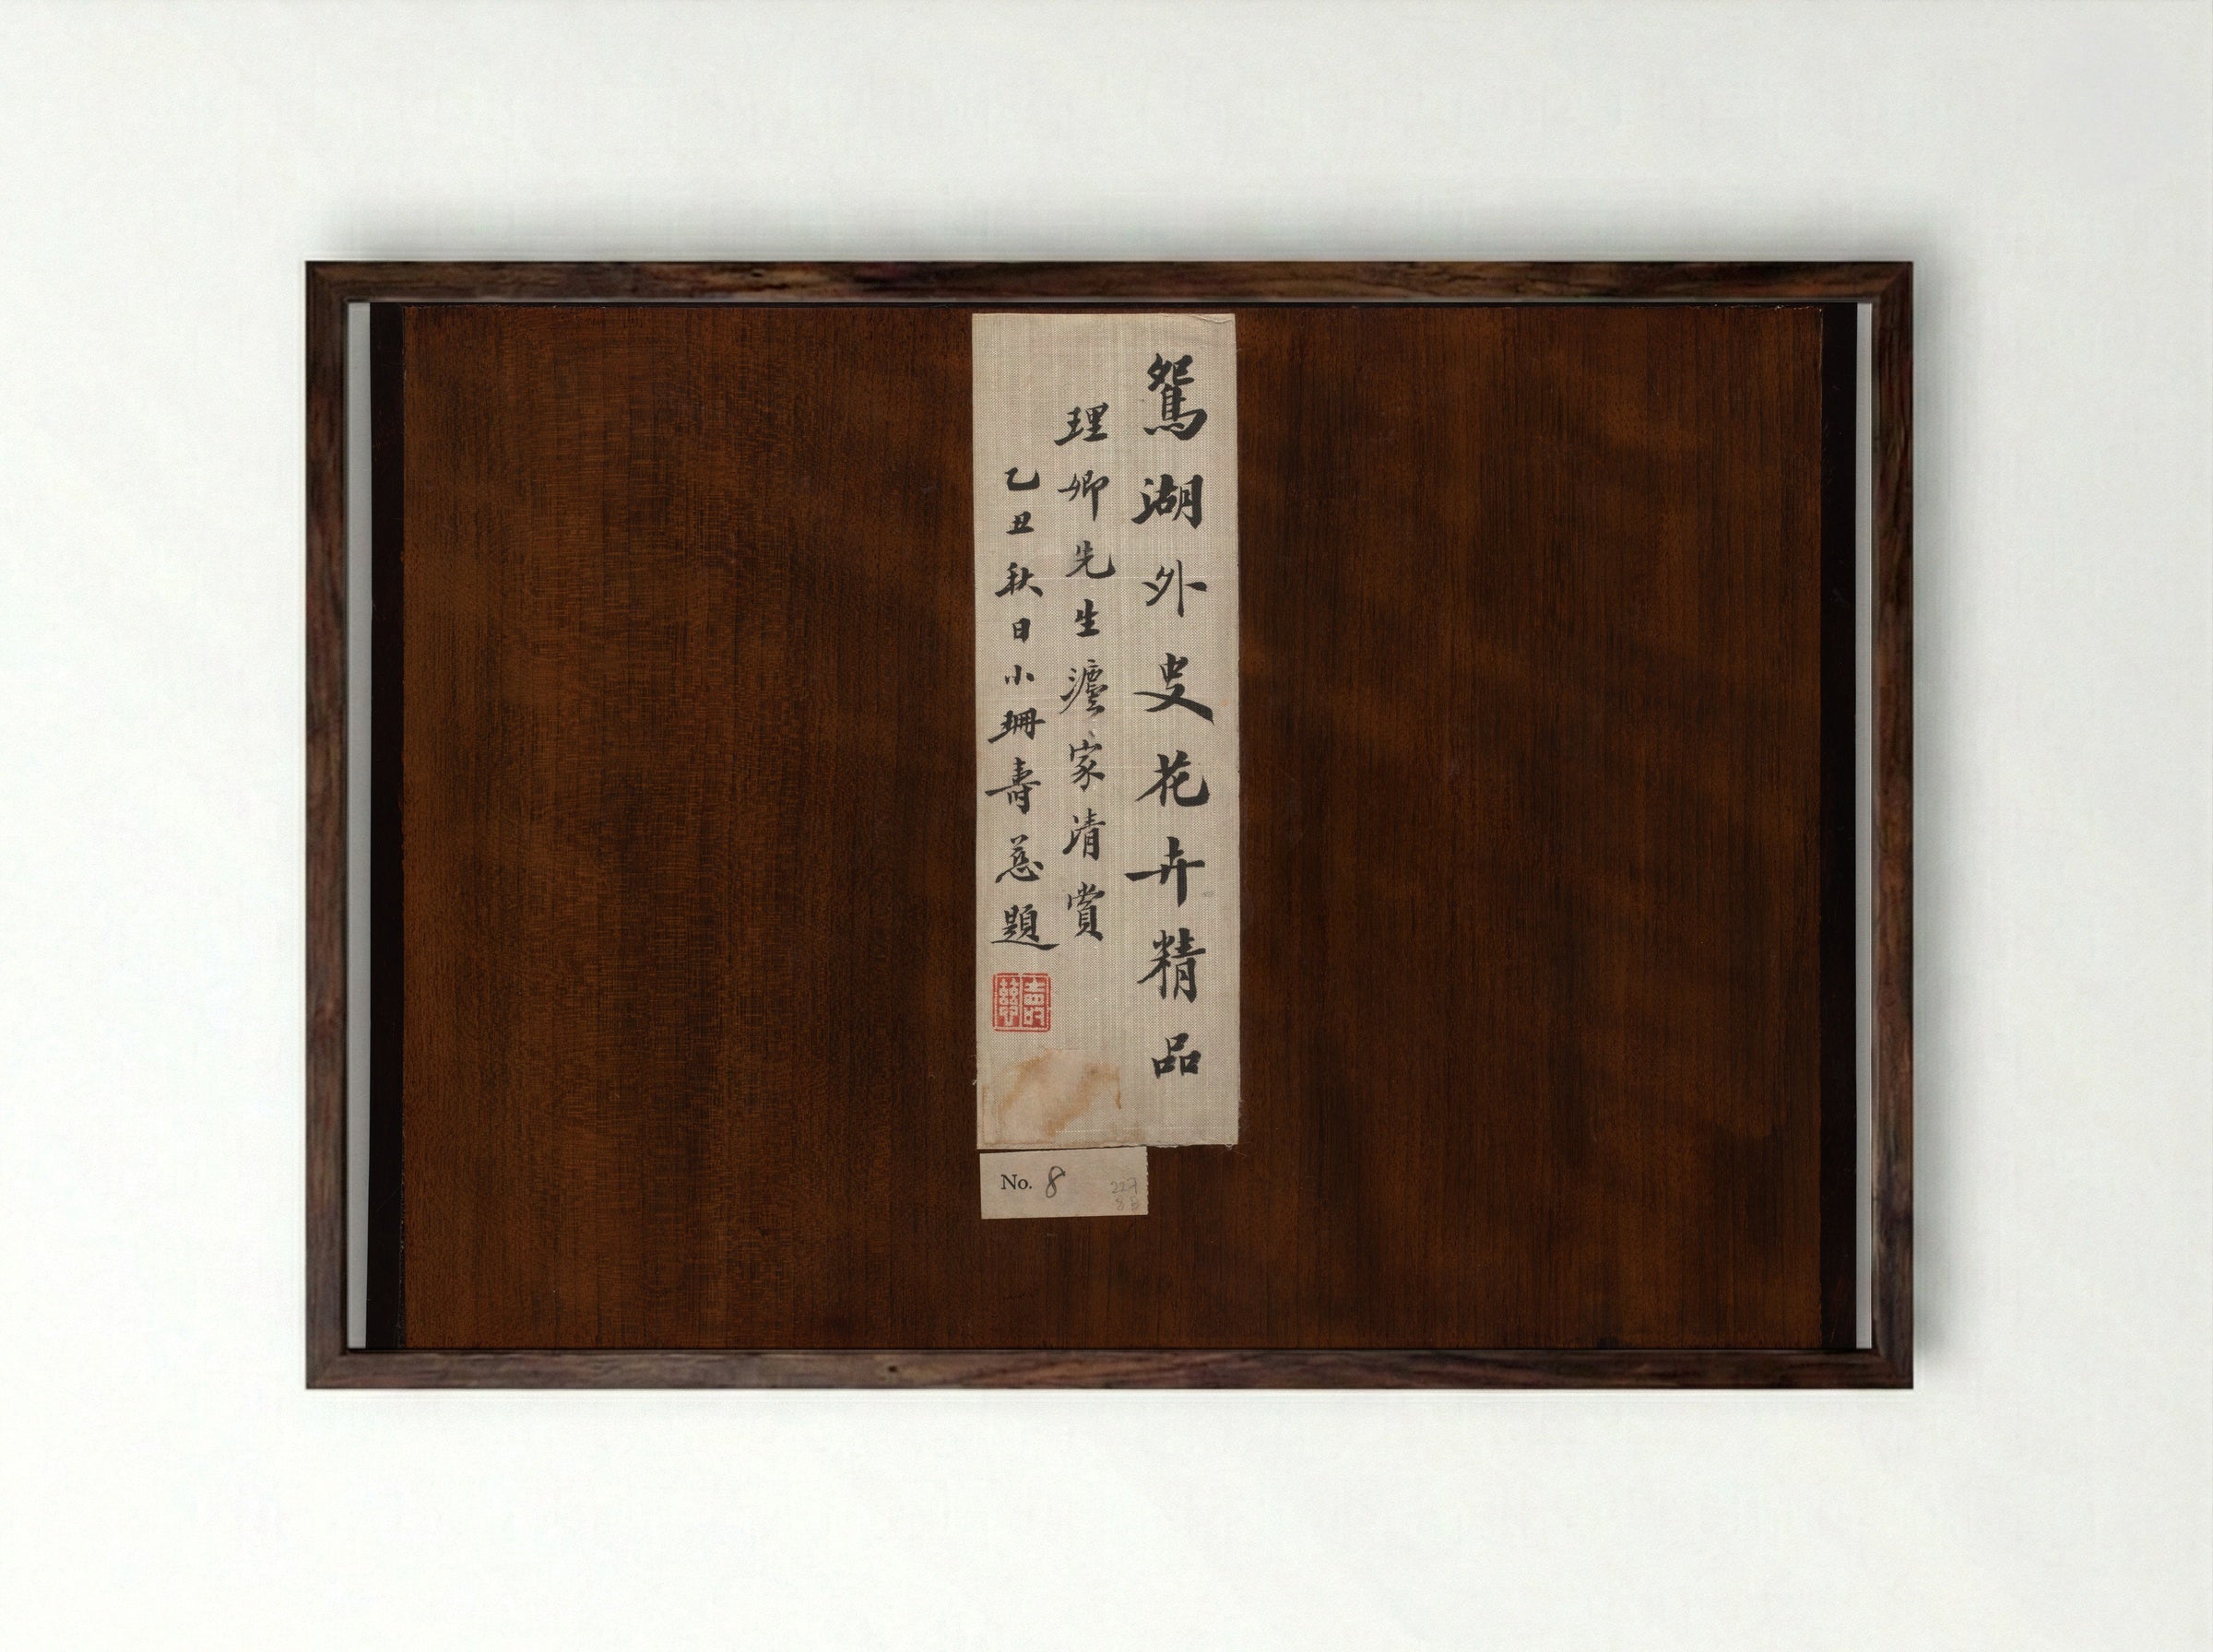 鴛湖外史花卉精品
理卿先生灋家清賞
乙丑秋日小珊壽慈題
壽慈
No. 8